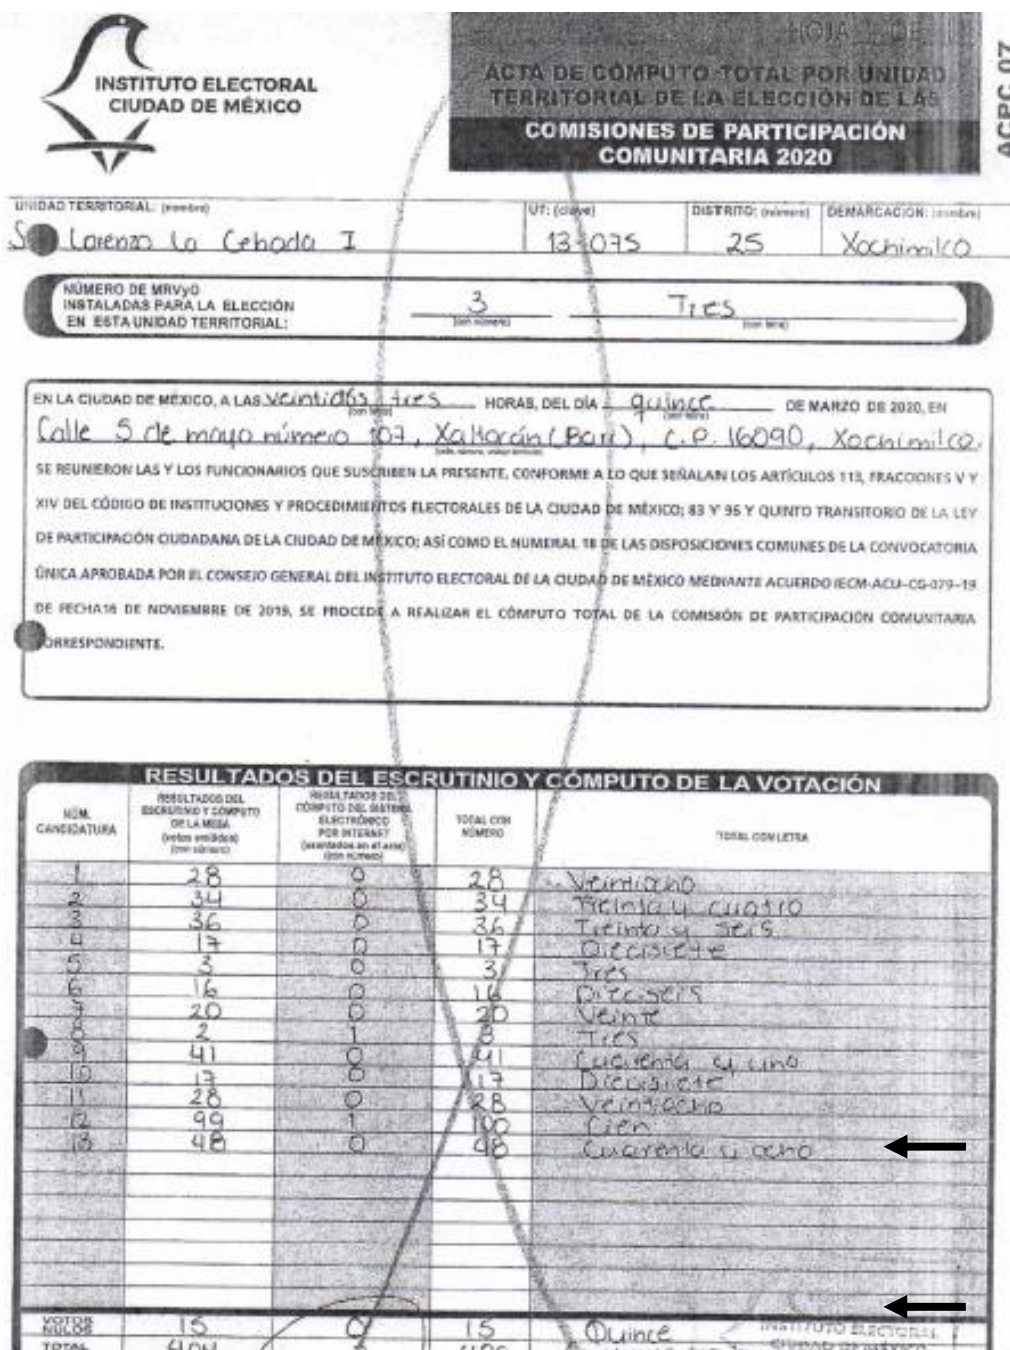 HOJA DE
INSTITUTO ELECTORAL
CIUDAD DE MÉXICO
ACTA DE CÓMPUTO TOTAL POR UNIDAD
TERRITORIAL DE LA ELECCIÓN DE LAS
COMISIONES DE PARTICIPACIÓN
COMUNITARIA 2020
ACPC 07
UNIDAD TERRITORIAL: (nombre) UT: (clave) DISTRITO: (número) DEMARCACIÓN: (nombre)
Lorenzo La Cebada I 13-075 25 Xochimilco
NÚMERO DE MRVyO
INSTALADAS PARA LA ELECCIÓN
EN ESTA UNIDAD TERRITORIAL:
3 Tres
(con número) (con letra)
EN LA CIUDAD DE MÉXICO, A LAS veintidós tres HORAS, DEL DÍA quince DE MARZO DE 2020, EN
(con letra) (con letra)
Calle 5 de mayo número 107, (Barr), C.P. 16090, Xochimilco.
SE REUNIERON LAS Y LOS FUNCIONARIOS QUE SUSCRIBEN LA PRESENTE, CONFORME A LO QUE SEÑALAN LOS ARTÍCULOS 113, FRACCIONES V Y
XIV DEL CÓDIGO DE INSTITUCIONES Y PROCEDIMIENTOS ELECTORALES DE LA CIUDAD DE MÉXICO; 83 Y 96 Y QUINTO TRANSITORIO DE LA LEY
DE PARTICIPACIÓN CIUDADANA DE LA CIUDAD DE MÉXICO; ASÍ COMO EL NUMERAL 18 DE LAS DISPOSICIONES COMUNES DE LA CONVOCATORIA
ÚNICA APROBADA POR EL CONSEJO GENERAL DEL INSTITUTO ELECTORAL DE LA CIUDAD DE MÉXICO MEDIANTE ACUERDO IECM-ACU-CG-079-19
DE FECHA 16 DE NOVIEMBRE DE 2019, SE PROCEDE A REALIZAR EL CÓMPUTO TOTAL DE LA COMISIÓN DE PARTICIPACIÓN COMUNITARIA
CORRESPONDIENTE.
RESULTADOS DEL ESCRUTINIO Y CÓMPUTO DE LA VOTACIÓN
NÚM.
CANDIDATURA
RESULTADOS DEL
ESCRUTINIO Y CÓMPUTO
DE LA MESA
(votos emitidos)
(con número)
RESULTADOS DEL
CÓMPUTO DEL SISTEMA
ELECTRÓNICO
POR INTERNET
(asentados en el acta)
(con número)
TOTAL CON
NÚMERO
TOTAL CON LETRA
1 28 0 28 Veintiocho
2 34 0 34 Treinta y cuatro
3 36 0 36 Treinta y seis
4 17 0 17 Diecisiete
5 3 0 3 Tres
6 16 0 16 Dieciseis
7 20 0 20 Veinte
8 2 1 3 Tres
9 41 0 41 Cuarenta y uno
10 17 0 17 Diecisiete
11 28 0 28 Veintiocho
12 99 1 100 Cien
13 48 0 48 Cuarenta y ocho
VOTOS
NULOS
15 0 15 Quince
INSTITUTO ELECTORAL
CIUDAD DE MÉXICO
TOTAL 404